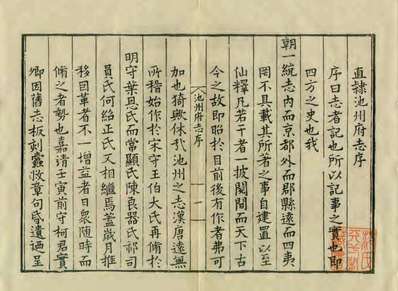 直隸池州府志序
序曰志者記也所以記事之實也即
四方之史也我
朝一統志内而京都外而郡縣遠而四夷
罔不具載其所著之事自建置以至
仙釋凡若干者一披閱間而天下古
今之故即昭於目前後有作者弗可
加也猗歟休哉池州之志漢唐遠無
池州府志序
所稽始作於宋守王伯大氏再脩於
明守葉恩氏而當顯氏陳良器氏祁司
員氏何紹正氏又相繼焉蓋歲月推
移因革者不一增益者日衆随時而
脩之者勢也嘉清壬寅前守柯君實
卿因舊志板刻靈收章句昏遺迺呈